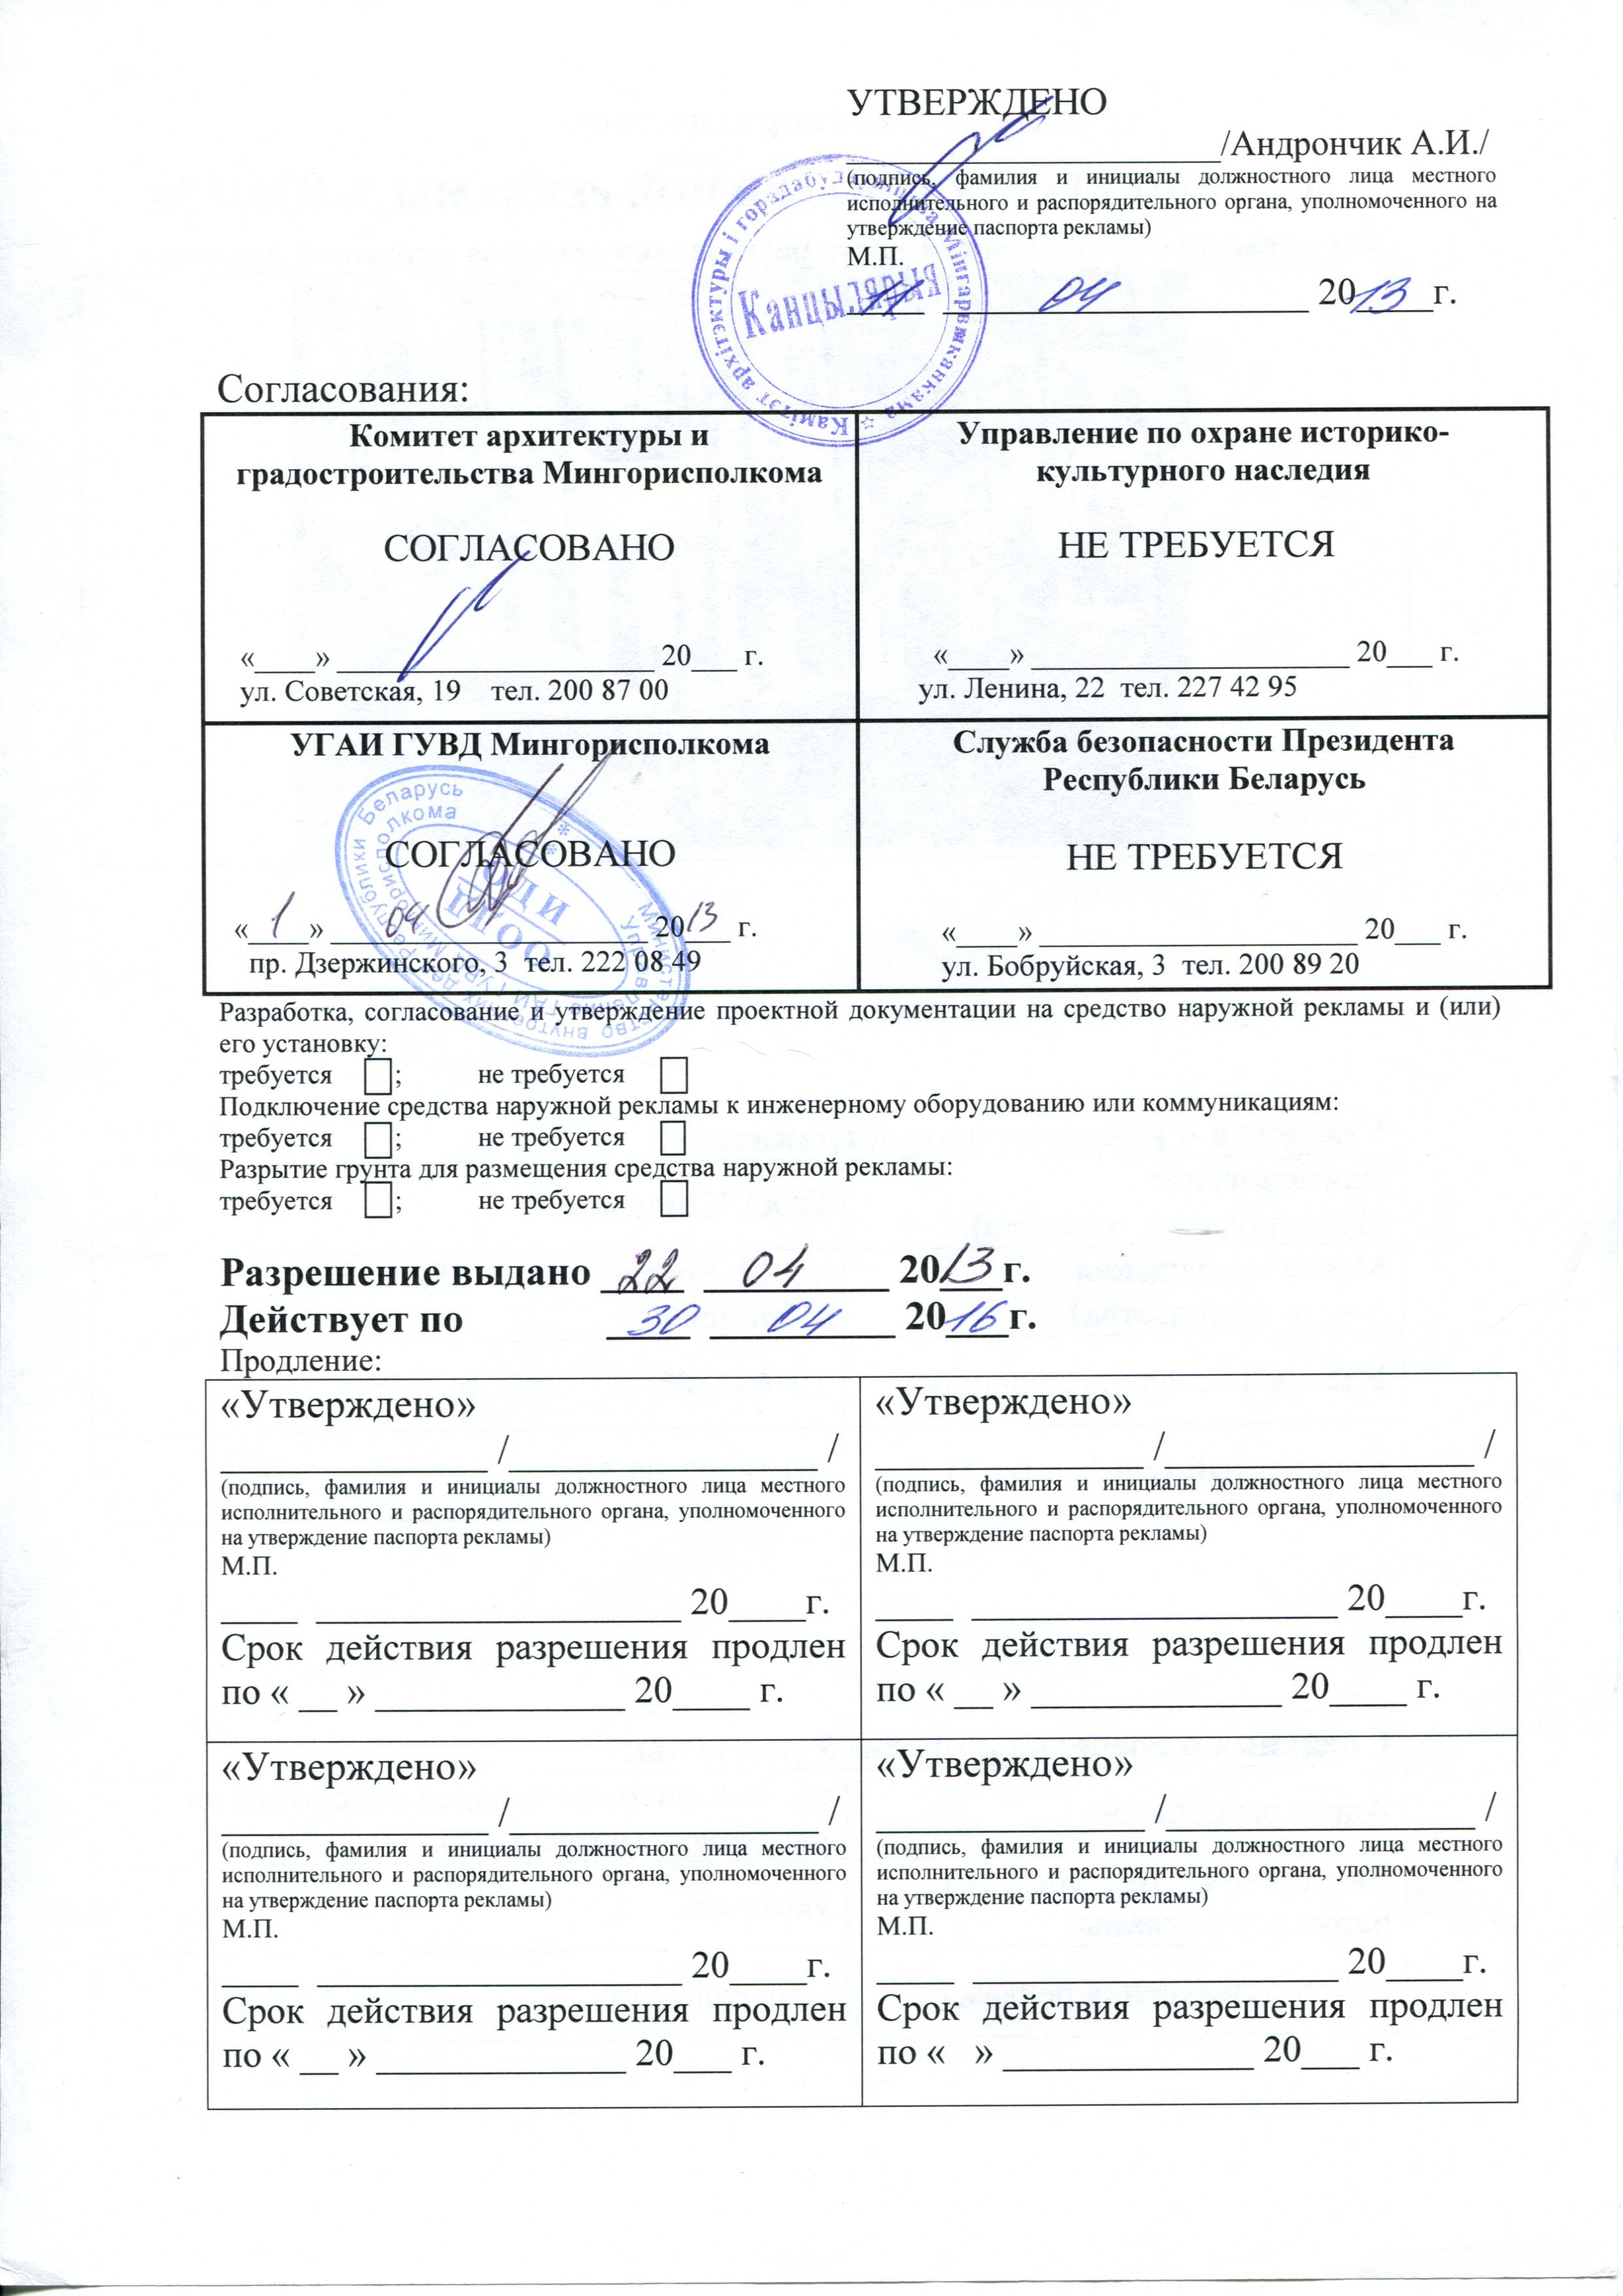 УТВЕРЖДЕНО
____________________/Андрончик А.И./
(подпись, фамилия и инициалы должностного лица местного
исполнительного и распорядительного органа, уполномоченного на
утверждение паспорта рекламы)
М.П.
11 04 2013 г.
Камітэт архітэктуры і горадабудаўніцтва Мінгарвыканкама
Канцылярыя
Согласования:
Комитет архитектуры и
градостроительства Мингорисполкома
СОГЛАСОВАНО
«____» ____________________ 20___ г.
ул. Советская, 19 тел. 200 87 00
Управление по охране историко-
культурного наследия
НЕ ТРЕБУЕТСЯ
«____» ____________________ 20___ г.
ул. Ленина, 22 тел. 227 42 95
УГАИ ГУВД Мингорисполкома
СОГЛАСОВАНО
«1» 04 2013 г.
пр. Дзержинского, 3 тел. 222 08 49
Министерство внутренних дел Республики Беларусь
Управление ГАИ ГУВД Мингорисполкома
ОДИ
ПТОО
Служба безопасности Президента
Республики Беларусь
НЕ ТРЕБУЕТСЯ
«____» ____________________ 20___ г.
ул. Бобруйская, 3 тел. 200 89 20
Разработка, согласование и утверждение проектной документации на средство наружной рекламы и (или)
его установку:
требуется ; не требуется
Подключение средства наружной рекламы к инженерному оборудованию или коммуникациям:
требуется ; не требуется
Разрытие грунта для размещения средства наружной рекламы:
требуется ; не требуется
Разрешение выдано 22 04 2013 г.
Действует по 30 04 2016 г.
Продление:
«Утверждено»
______________ /________________ /
(подпись, фамилия и инициалы должностного лица местного
исполнительного и распорядительного органа, уполномоченного
на утверждение паспорта рекламы)
М.П.
____ ___________________ 20____г.
Срок действия разрешения продлен
по « __ » _____________ 20____ г.
«Утверждено»
______________ /________________ /
(подпись, фамилия и инициалы должностного лица местного
исполнительного и распорядительного органа, уполномоченного
на утверждение паспорта рекламы)
М.П.
____ ___________________ 20____г.
Срок действия разрешения продлен
по « __ » _____________ 20____ г.
«Утверждено»
______________ /________________ /
(подпись, фамилия и инициалы должностного лица местного
исполнительного и распорядительного органа, уполномоченного
на утверждение паспорта рекламы)
М.П.
____ ___________________ 20____г.
Срок действия разрешения продлен
по « __ » _____________ 20___ г.
«Утверждено»
______________ /________________ /
(подпись, фамилия и инициалы должностного лица местного
исполнительного и распорядительного органа, уполномоченного
на утверждение паспорта рекламы)
М.П.
____ ___________________ 20____г.
Срок действия разрешения продлен
по « » _____________ 20___ г.